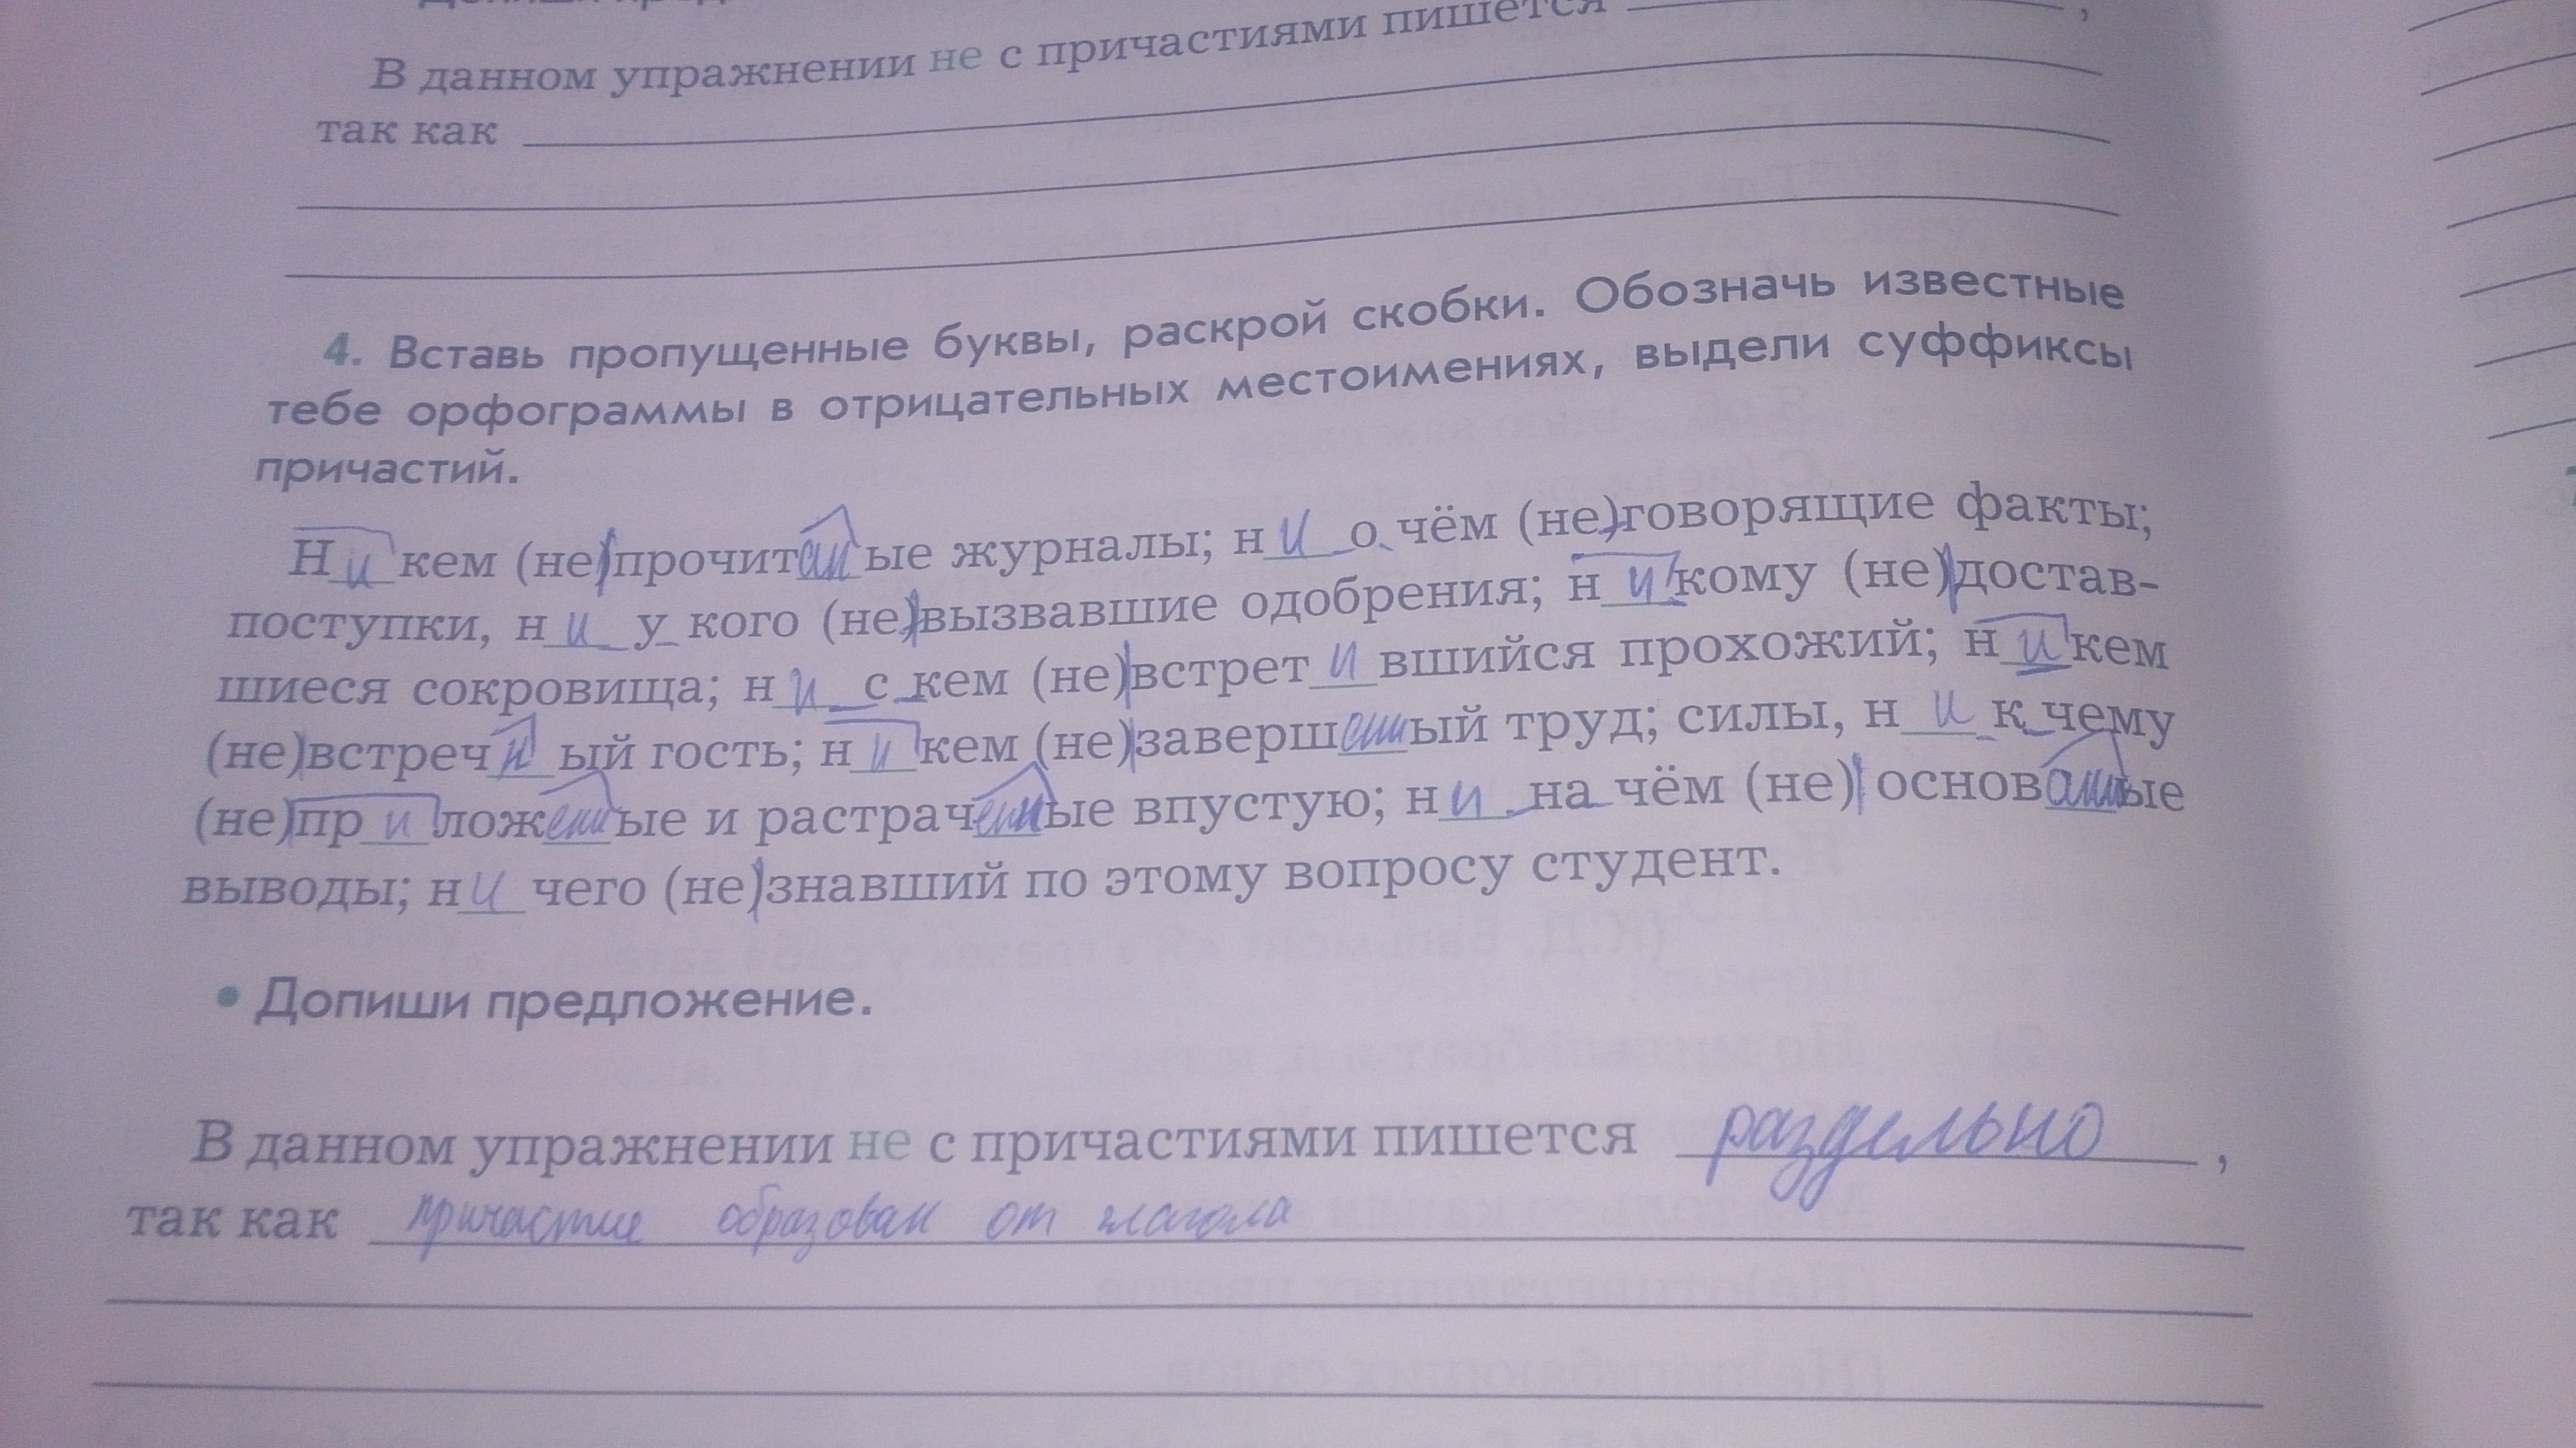 В данном упражнении не с причастиями пишется ,
так как
4. Вставь пропущенные буквы, раскрой скобки. Обозначь известные
тебе орфограммы в отрицательных местоимениях, выдели суффиксы
причастий.
Н и кем (не)прочитанные журналы; н и о чём (не)говорящие факты;
поступки, н и у кого (не)вызвавшие одобрения; н и кому (не)достав-
шиеся сокровища; н и с кем (не)встрет и вшийся прохожий; н и кем
(не)встреч ый гость; н и кем (не)завершенный труд; силы, н и к чему
(не)пр и ложенные и растраченные впустую; н и на чём (не) основанные
выводы; н и чего (не)знавший по этому вопросу студент.
• Допиши предложение.
В данном упражнении не с причастиями пишется раздельно ,
так как причастие образован от глагола